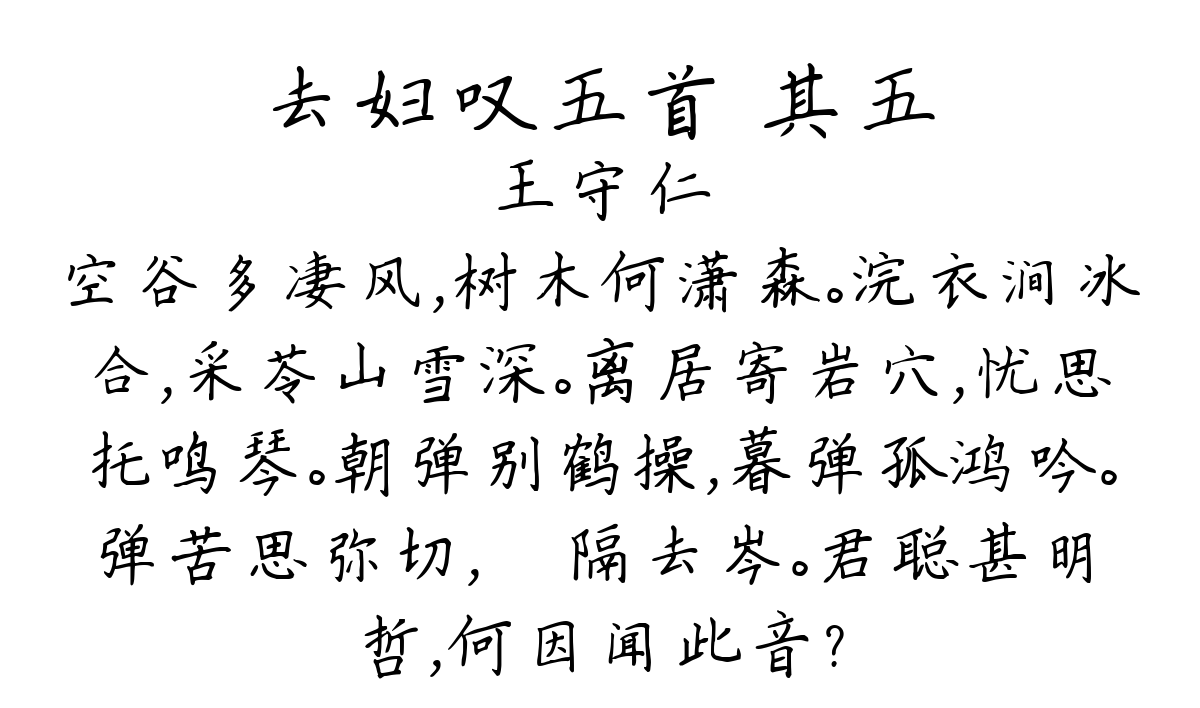 去妇叹五首 其五
王守仁
空谷多凄风,树木何潇森。浣衣涧冰
合,采苓山雪深。离居寄岩穴,忧思
托鸣琴。朝弹别鹤操,暮弹孤鸿吟。
弹苦思弥切, 隔去岑。君聪甚明
哲,何因闻此音?